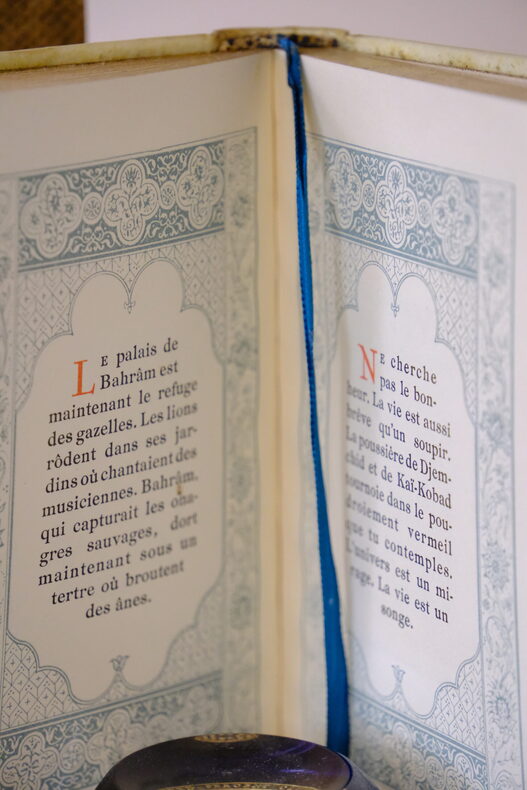 Le palais de
Bahrâm est
maintenant le refuge
des gazelles. Les lions
rôdent dans ses jar-
dins où chantaient des
musiciennes. Bahrâm,
qui capturait les ona-
gres sauvages, dort
maintenant sous un
tertre où broutent
des ânes.
Ne cherche
pas le bon-
heur. La vie est aussi
brève qu'un soupir.
La poussière de Djem-
chid et de Kaï-Kobad
tournoie dans le pou-
droiement vermeil
que tu contemples.
L'univers est un mi-
rage. La vie est un
songe.